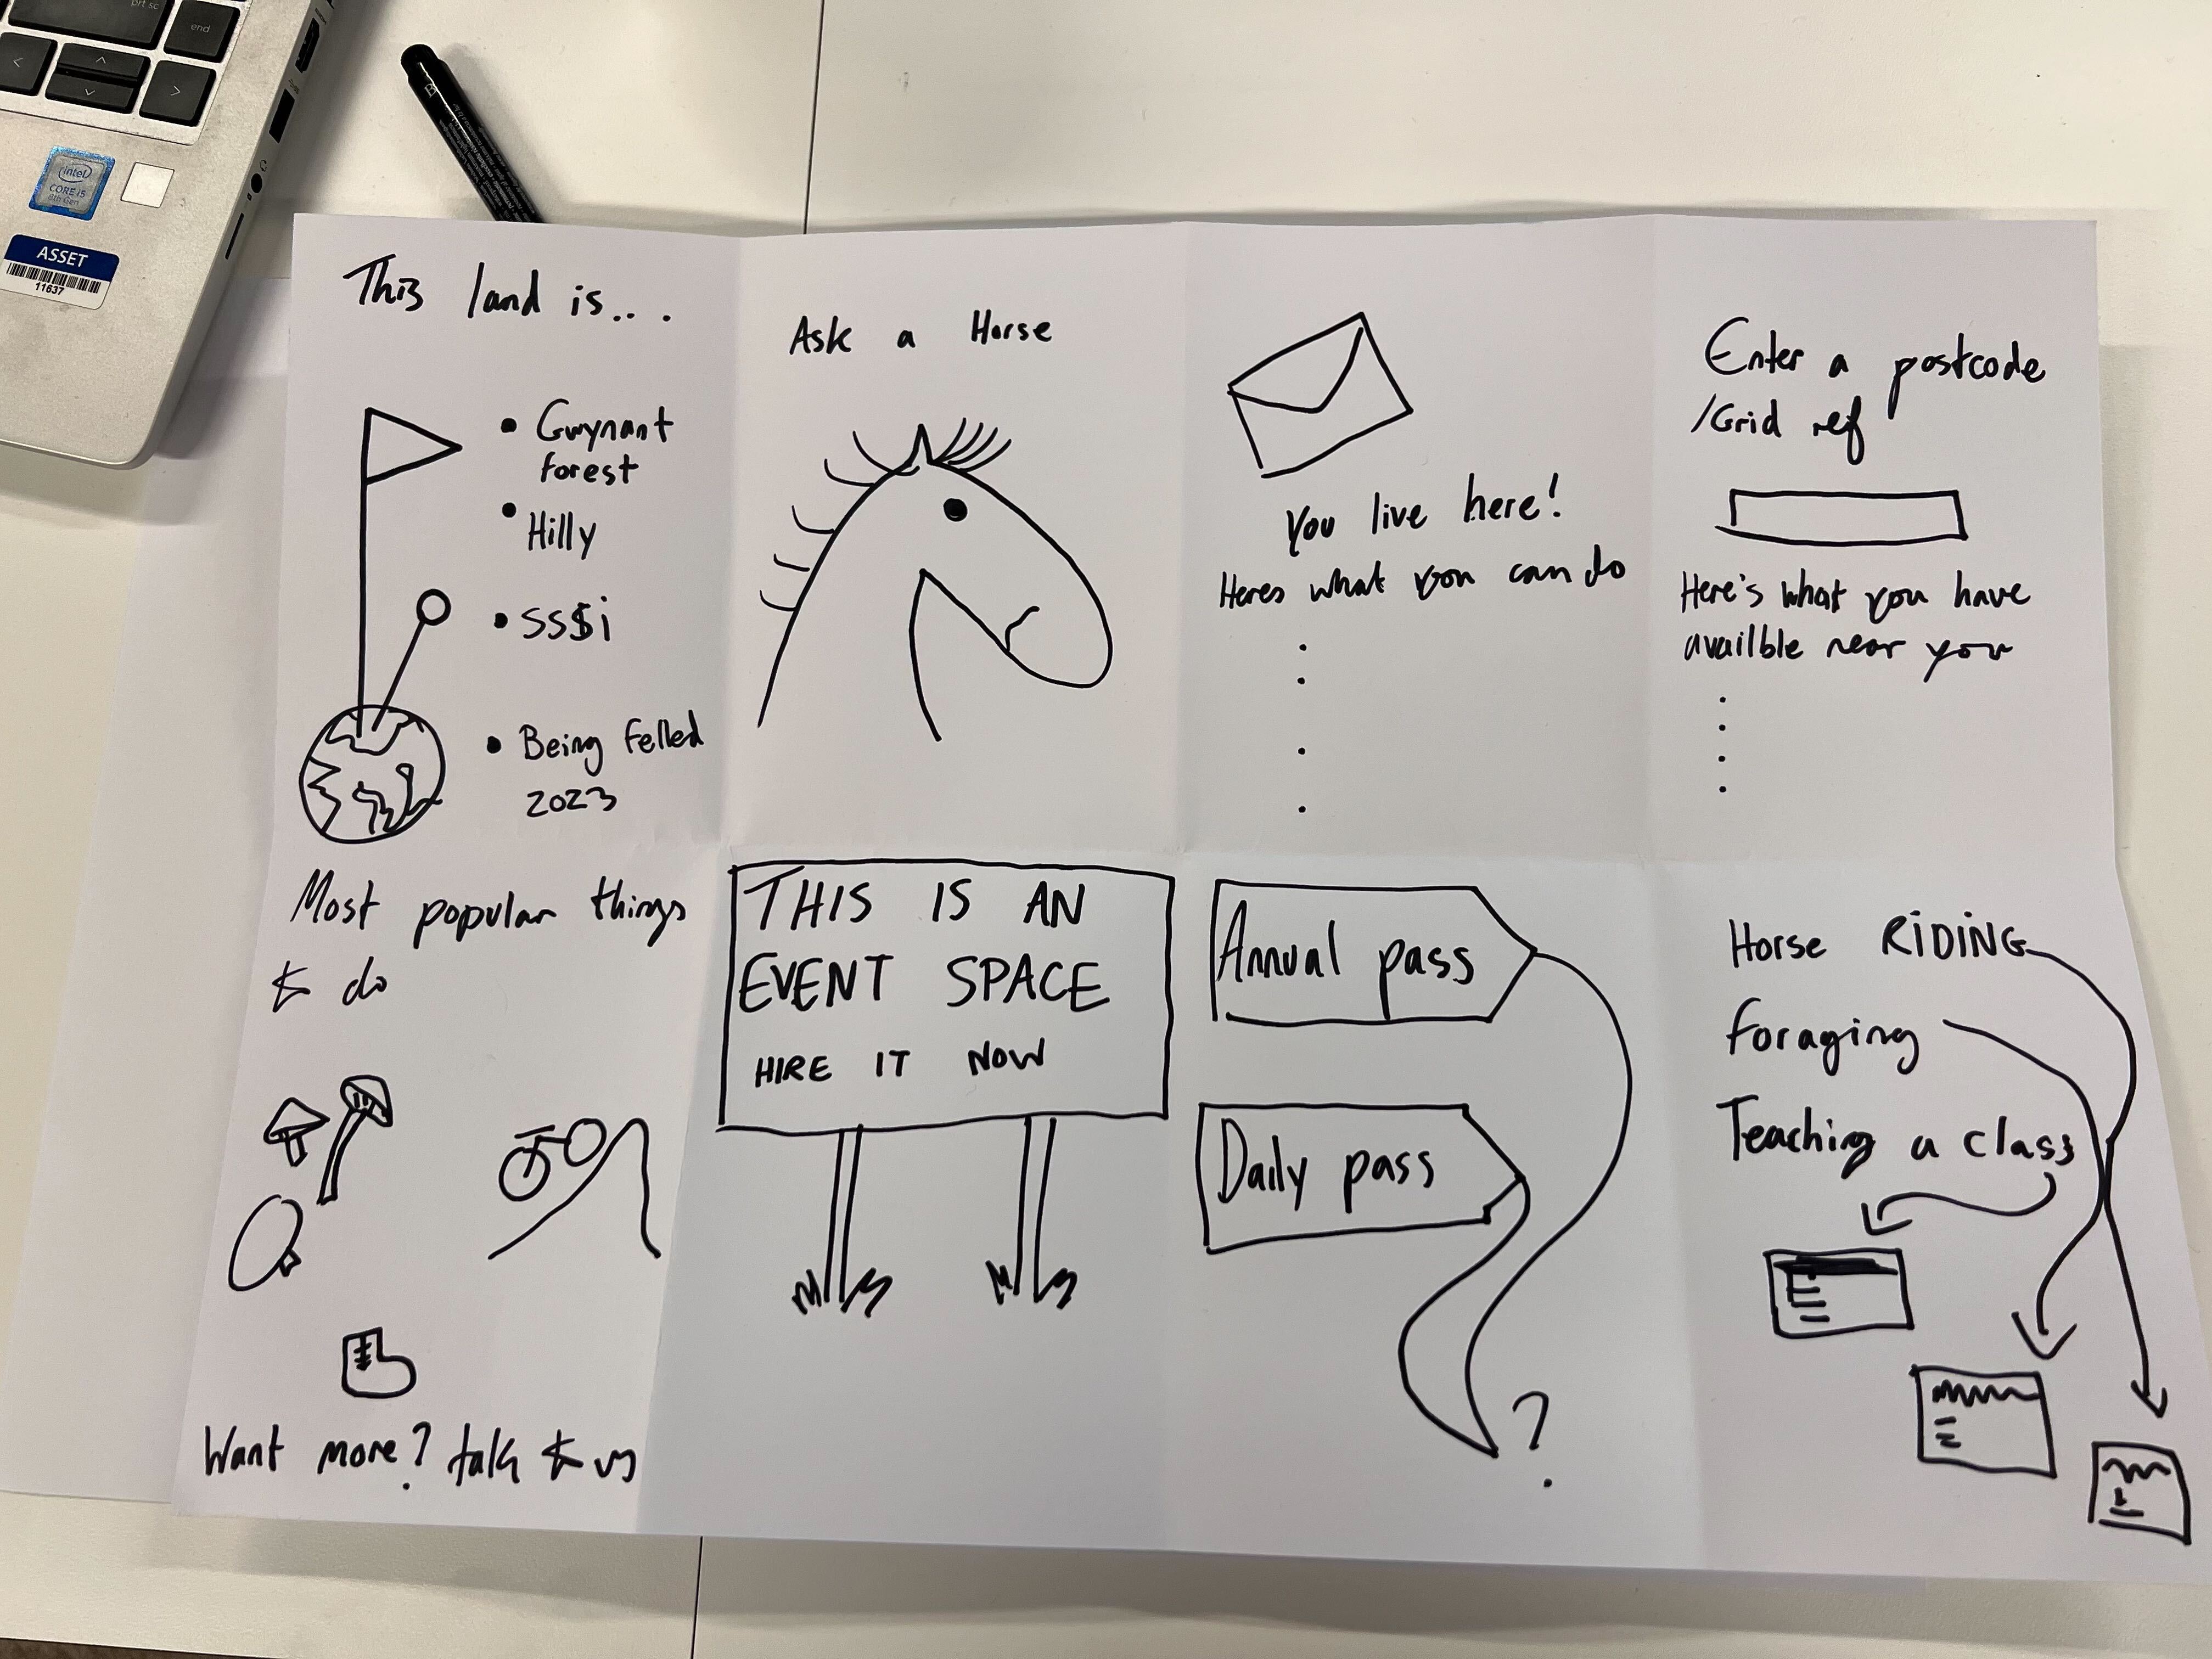 prt sc
end
intel
CORE i5
8th Gen
ASSET
11637
This land is...
Gwynant
forest
Hilly
SS$i
Being Felled
2023
Ask a Horse
You live here!
Heres what you can do
Enter a postcode
/Grid ref
Here's what you have
availble near you
Most popular things
to do
Want more? talk to us
THIS IS AN
EVENT SPACE
HIRE IT NOW
Annual pass
Daily pass
?
Horse RiDiNG
foraging
Teaching a class